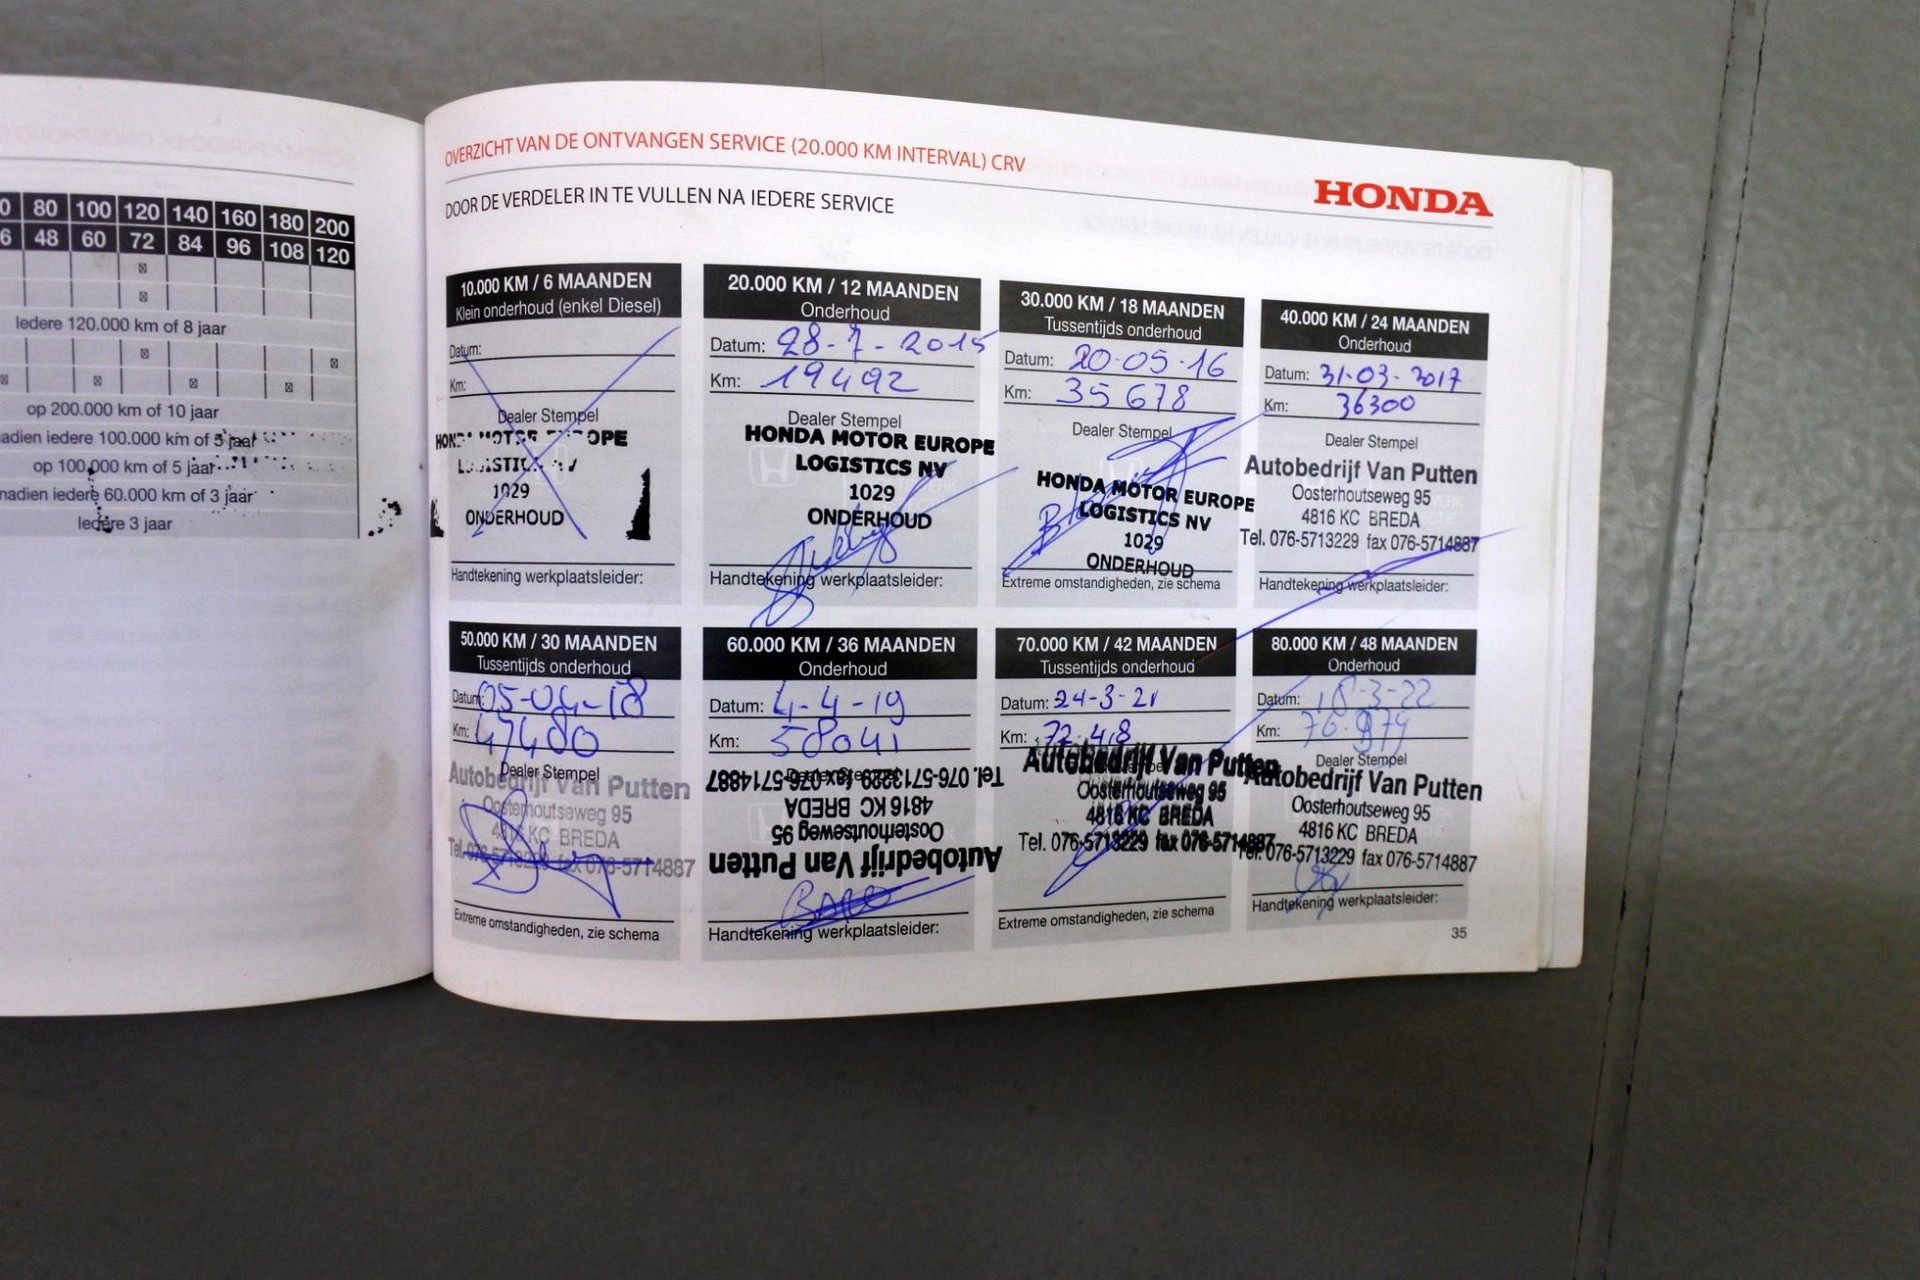 80 100 120 140 160 180 200
48 60 72 84 96 108 120
Iedere 120.000 km of 8 jaar
op 200.000 km of 10 jaar
iedere 100.000 km of 5 jaar
op 100.000 km of 5 jaar
iedere 60.000 km of 3 jaar
Iedere 3 jaar
OVERZICHT VAN DE ONTVANGEN SERVICE (20.000 KM INTERVAL) CRV
HONDA
DOOR DE VERDELER IN TE VULLEN NA IEDERE SERVICE
10.000 KM / 6 MAANDEN
Klein onderhoud (enkel Diesel)
Datum:
Km:
Dealer Stempel
HONDA MOTOR EUROPE
LOGISTICS NV
1029
ONDERHOUD
Handtekening werkplaatsleider:
20.000 KM / 12 MAANDEN
Onderhoud
Datum: 28-7-2015
Km: 19492
Dealer Stempel
HONDA MOTOR EUROPE
LOGISTICS NV
1029
ONDERHOUD
Handtekening werkplaatsleider:
30.000 KM / 18 MAANDEN
Tussentijds onderhoud
Datum: 20-05-16
Km: 35678
Dealer Stempel
HONDA MOTOR EUROPE
LOGISTICS NV
1029
ONDERHOUD
Extreme omstandigheden, zie schema
40.000 KM / 24 MAANDEN
Onderhoud
Datum: 31-03-2017
Km: 36300
Dealer Stempel
Autobedrijf Van Putten
Oosterhoutseweg 95
4816 KC BREDA
Tel. 076-5713229 fax 076-5714887
Handtekening werkplaatsleider:
50.000 KM / 30 MAANDEN
Tussentijds onderhoud
Datum: 05-04-18
Km: 47480
Dealer Stempel
Autobedrijf Van Putten
Oosterhoutseweg 95
4816 KC BREDA
Tel. 076-5713229 fax 076-5714887
Extreme omstandigheden, zie schema
60.000 KM / 36 MAANDEN
Onderhoud
Datum: 4-4-19
Km: 58041
Dealer Stempel
Autobedrijf Van Putten
Oosterhoutseweg 95
4816 KC BREDA
Tel. 076-5713229 fax 076-5714887
Handtekening werkplaatsleider:
70.000 KM / 42 MAANDEN
Tussentijds onderhoud
Datum: 24-3-21
Km: 72.418
Autobedrijf Van Putten
Oosterhoutseweg 95
4816 KC BREDA
Tel. 076-5713229 fax 076-5714887
Extreme omstandigheden, zie schema
80.000 KM / 48 MAANDEN
Onderhoud
Datum: 18-3-22
Km: 76.979
Dealer Stempel
Autobedrijf Van Putten
Oosterhoutseweg 95
4816 KC BREDA
Tel. 076-5713229 fax 076-5714887
Handtekening werkplaatsleider:
35